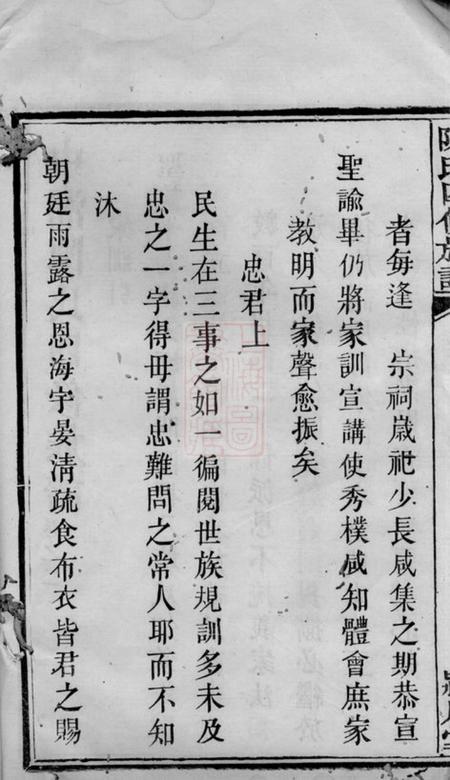 者每逢　宗祠歲祀少長咸集之期恭宣
聖諭畢仍將家訓宣講使秀樸咸知體會庶家
教明而家聲愈振矣
忠君上
民生在三事之如一徧閱世族規訓多未及
忠之一字得毋謂忠難問之常人耶而不知
沐
朝廷雨露之恩海宇晏清疏食布衣皆君之賜